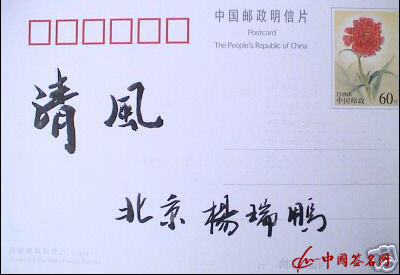 中国邮政明信片
Postcard
The People's Republic of China
CHINA
中国邮政
60分
清風
北京 楊瑞鵬
中国签名网